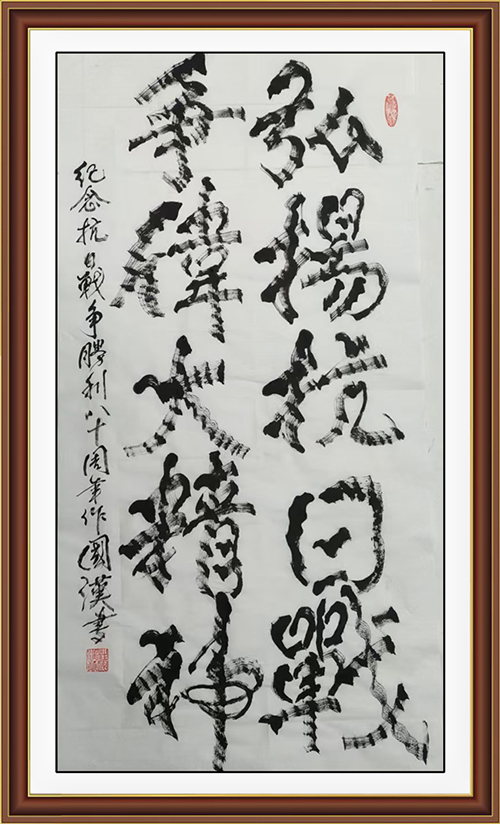 弘揚抗日戰
爭偉大精神
紀念抗日戰爭勝利八十周年作國漢書